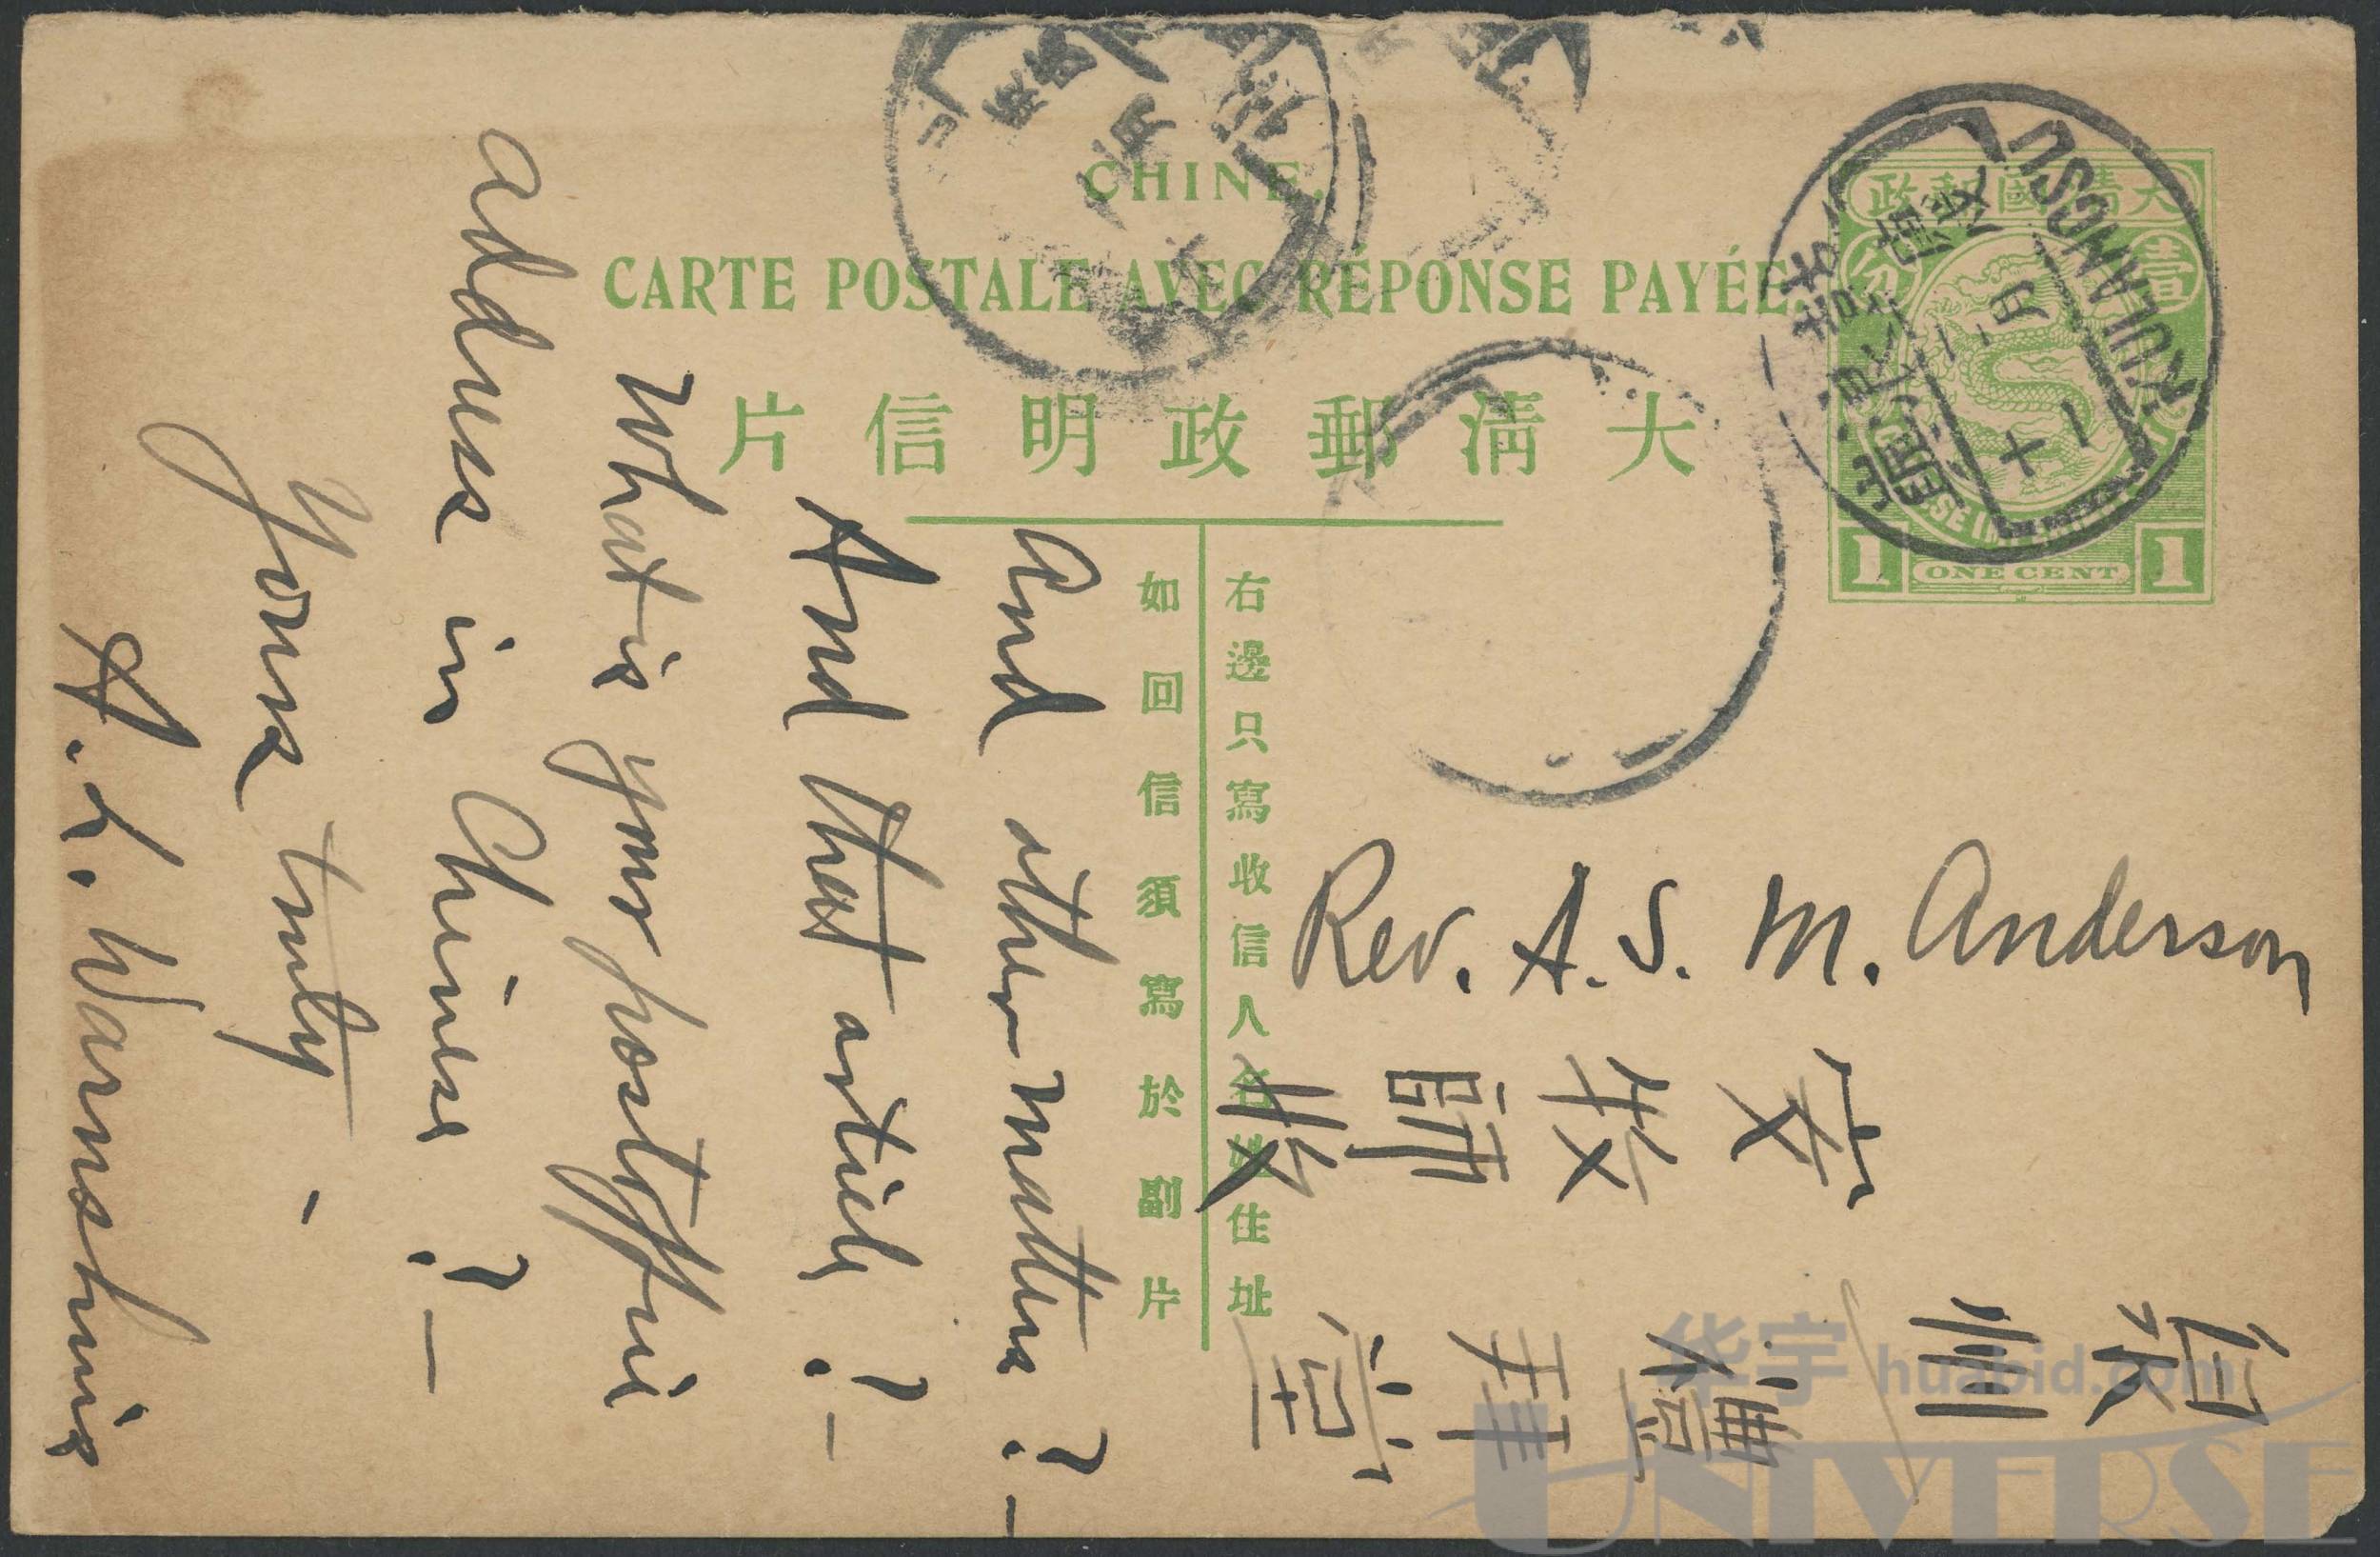 CHINE.
CARTE POSTALE AVEC RÉPONSE PAYÉE.
大清郵政明信片
右邊只寫收信人名姓住址
如回信須寫於副片
大清國郵政
壹分
1 ONE CENT 1
KULANGSU
Rev. A. S. M. Anderson
泉州
禮拜堂
安牧師收
and other matters? –
And that article? –
What is your postoffice
address in Chinese? –
Yours truly –
A. L. Warnshuis
华宇 huabid.com
UNIVERSE